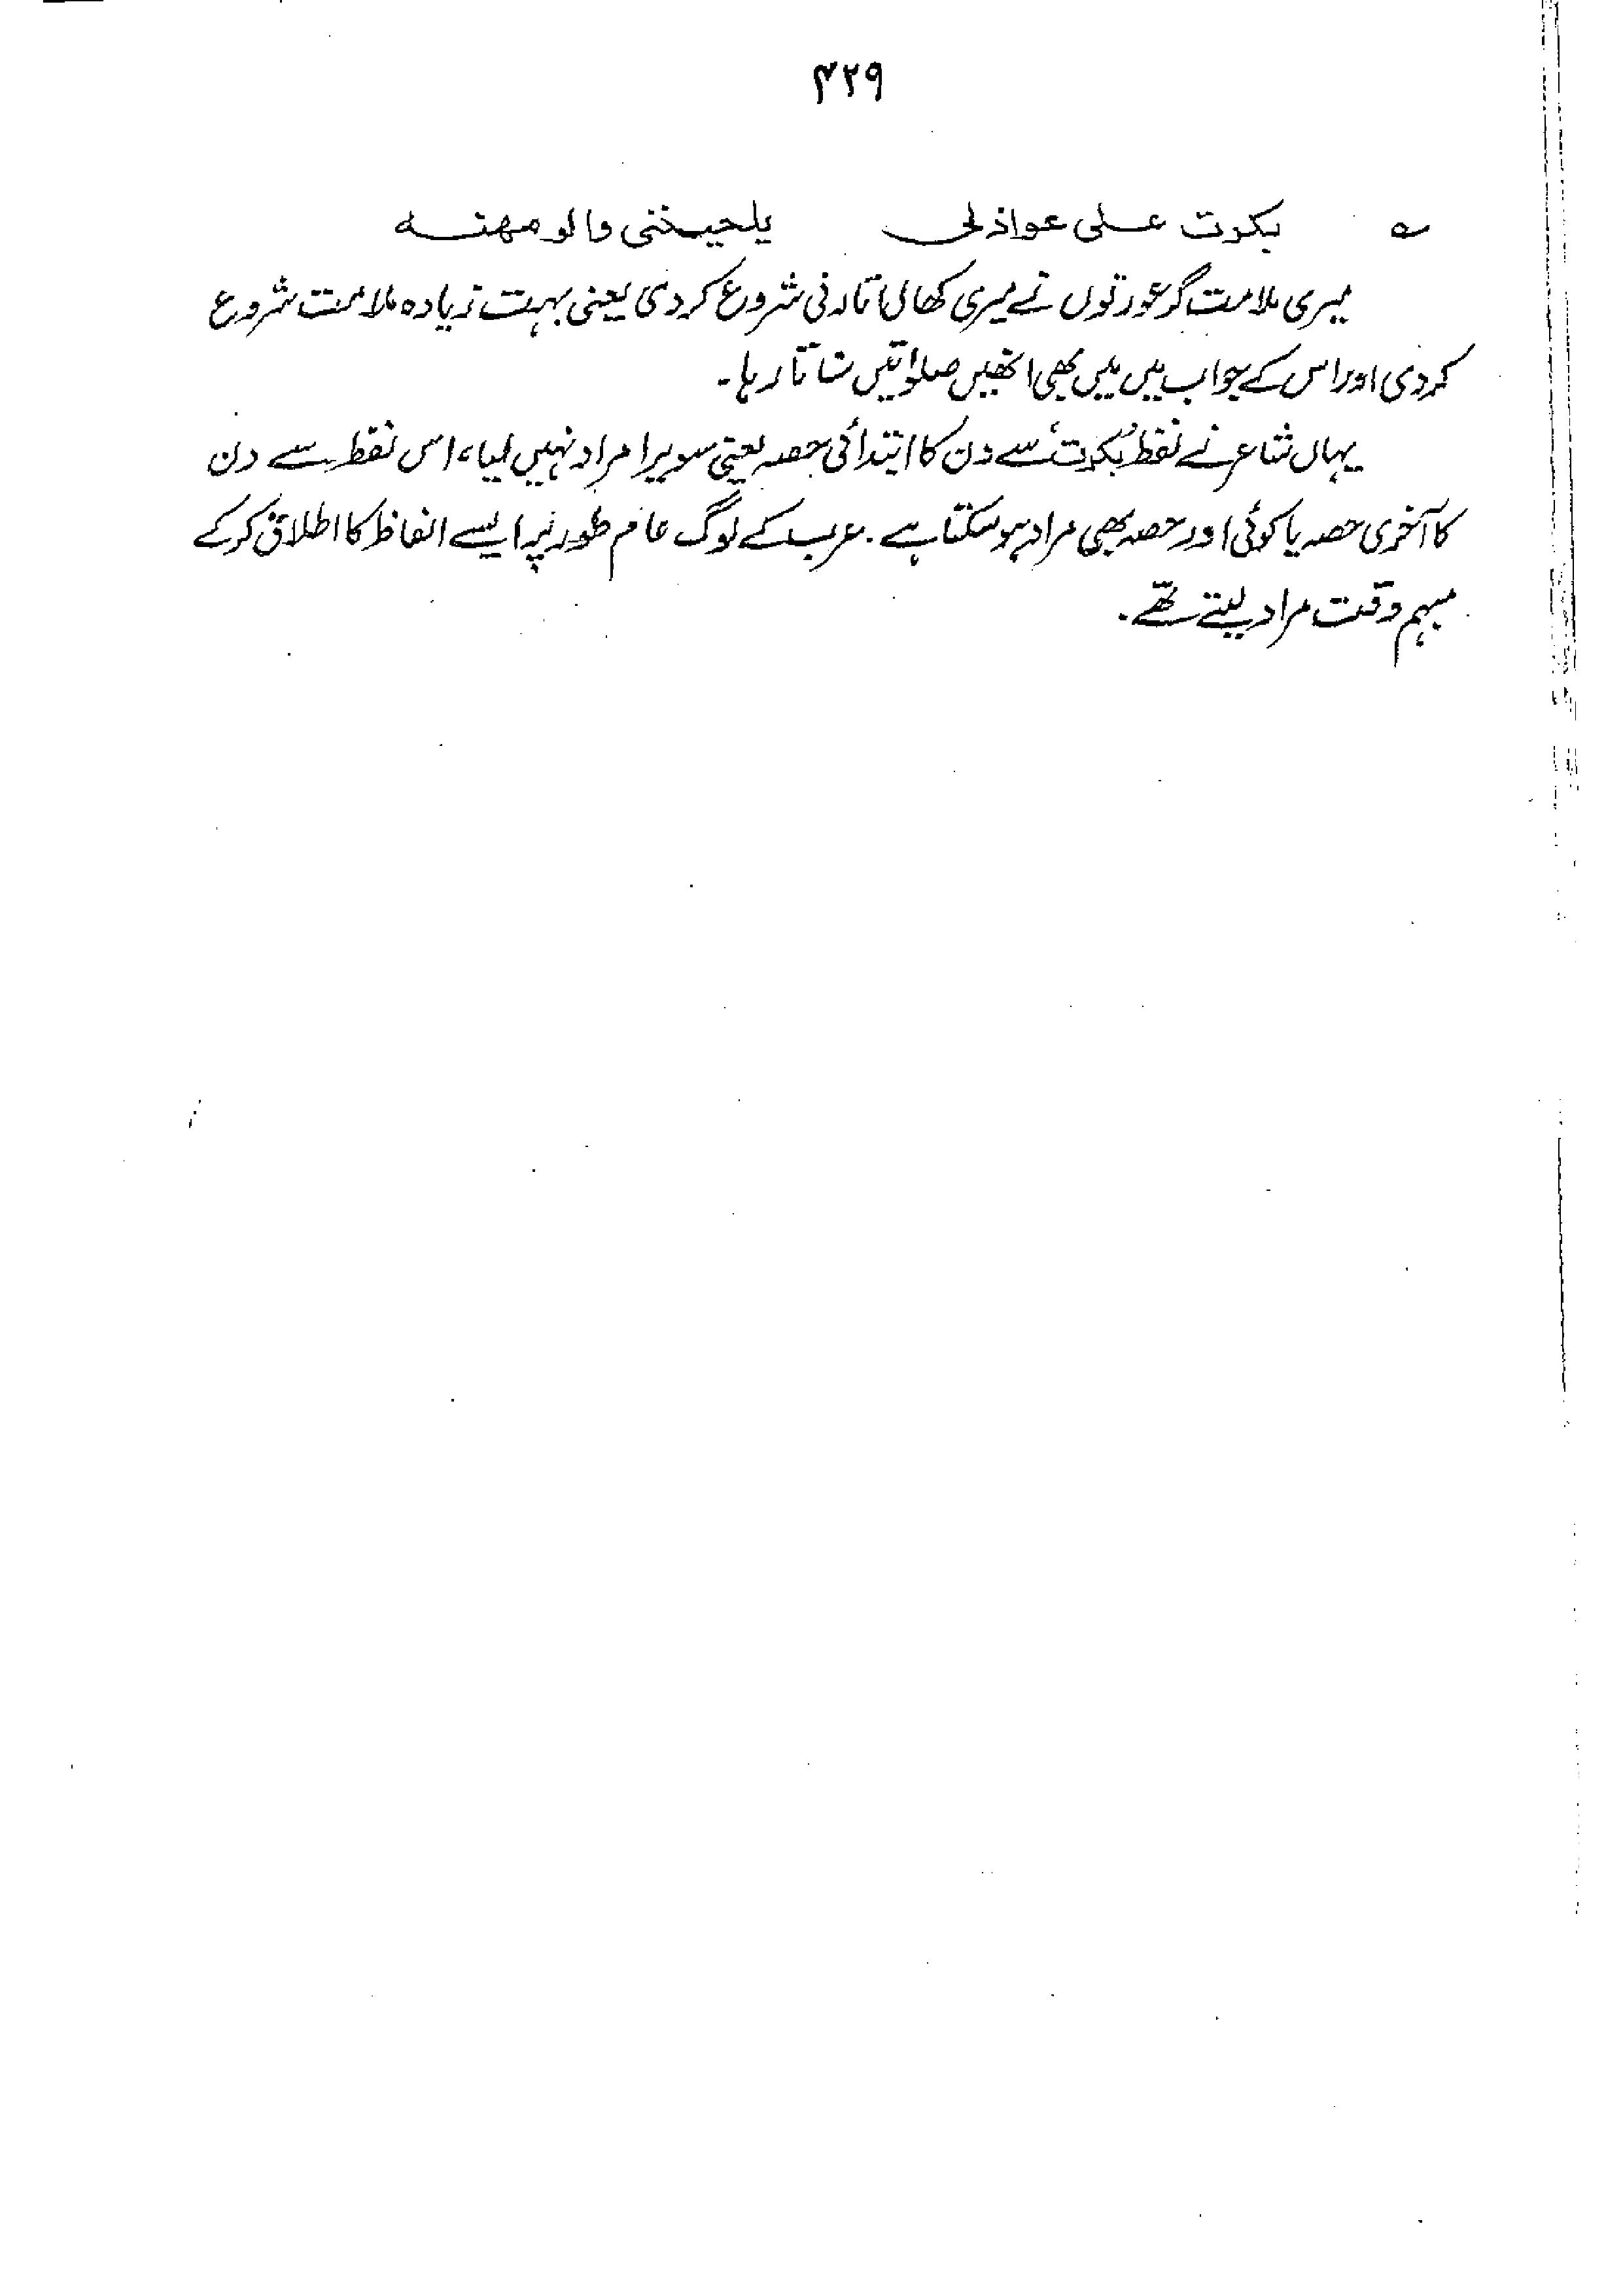 ۴۲۹
؎ بکرت علی عواذلی یلحیننی والومهنه
میری ملامت گر عورتوں نے میری کھال اتارنی شروع کردی یعنی بہت زیادہ ملامت شروع
کردی اور اس کے جواب میں میں بھی انھیں صلواتیں سناتا رہا۔
یہاں شاعر نے لفظ 'بکرت' سے دن کا ابتدائی حصہ یعنی سویرا مراد نہیں لیا، اس لفظ سے دن
کا آخری حصہ یا کوئی اور حصہ بھی مراد ہو سکتا ہے۔ عرب کے لوگ عام طور پر ایسے الفاظ کا اطلاق کر کے
مبہم وقت مراد لیتے تھے۔